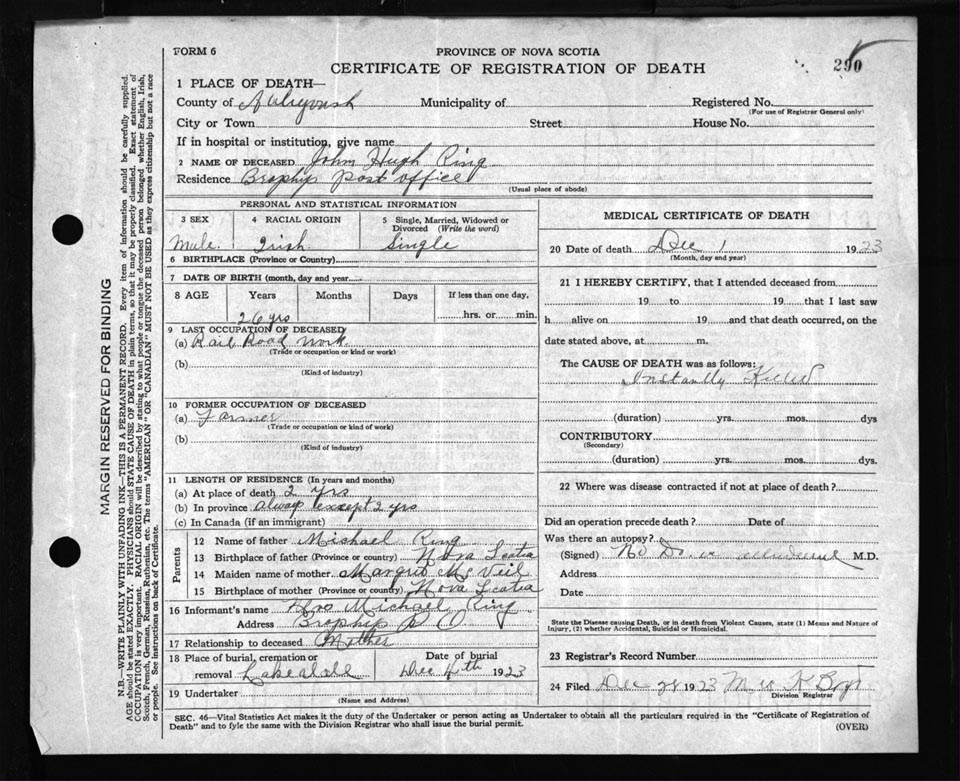 FORM 6
PROVINCE OF NOVA SCOTIA
CERTIFICATE OF REGISTRATION OF DEATH
290
1 PLACE OF DEATH—
County of Municipality of Registered No.
(For use of Registrar General only)
City or Town Street House No.
If in hospital or institution, give name
2 NAME OF DECEASED John Hugh Ring
Residence Brophys post office
(Usual place of abode)
PERSONAL AND STATISTICAL INFORMATION
3 SEX
Male.
4 RACIAL ORIGIN
Irish
5 Single, Married, Widowed or
Divorced (Write the word)
Single
6 BIRTHPLACE (Province or Country)
7 DATE OF BIRTH (month, day and year)
8 AGE Years Months Days If less than one day,
26 yrs hrs. or min.
9 LAST OCCUPATION OF DECEASED
(a) Rail Road work
(Trade or occupation or kind or work)
(b)
(Kind of industry)
10 FORMER OCCUPATION OF DECEASED
(a) Farmer
(Trade or occupation or kind of work)
(b)
(Kind of industry)
11 LENGTH OF RESIDENCE (In years and months)
(a) At place of death 2 yrs
(b) In province always except 2 yrs
(c) In Canada (if an immigrant)
Parents
12 Name of father Mishael Ring
13 Birthplace of father (Province or country) Nova Scotia
14 Maiden name of mother
15 Birthplace of mother (Province or country) Nova Scotia
16 Informant's name Mrs Michael Ring
Address Brophys P O
17 Relationship to deceased Mother
18 Place of burial, cremation or
removal
Date of burial
Dec 4th 1923
19 Undertaker
(Name and Address)
MEDICAL CERTIFICATE OF DEATH
20 Date of death Dec 1 1923
(Month, day and year)
21 I HEREBY CERTIFY, that I attended deceased from
19 to 19 that I last saw
h alive on 19 and that death occurred, on the
date stated above, at m.
The CAUSE OF DEATH was as follows:
Instantly Killed
(duration) yrs. mos. dys
CONTRIBUTORY
(Secondary)
(duration) yrs. mos. dys.
22 Where was disease contracted if not at place of death?
Did an operation precede death? Date of
Was there an autopsy?
(Signed) No Dr in M.D.
Address
Date
State the Disease causing Death, or in death from Violent Causes, state (1) Means and Nature of
Injury, (2) whether Accidental, Suicidal or Homicidal.
23 Registrar's Record Number
24 Filed Dec 28 1923
Division Registrar
SEC. 46—Vital Statistics Act makes it the duty of the Undertaker or person acting as Undertaker to obtain all the particulars required in the "Certificate of Registration of
Death" and to fyle the same with the Division Registrar who shall issue the burial permit.
(OVER)
MARGIN RESERVED FOR BINDING
N.B.—WRITE PLAINLY WITH UNFADING INK—THIS IS A PERMANENT RECORD. Every item of information should be carefully supplied.
AGE should be stated EXACTLY. PHYSICIANS should STATE CAUSE OF DEATH in plain terms, so that it may be properly classified. Exact statement of
OCCUPATION is very important. RACIAL ORIGIN will be described by stating to what people or tongue the deceased person belonged whether English, Irish,
Scotch, French, German, Russian, Ruthenian, etc. The terms "AMERICAN" OR "CANADIAN" MUST NOT BE USED as they express citizenship but not a race
or people. See instructions on back of Certificate.